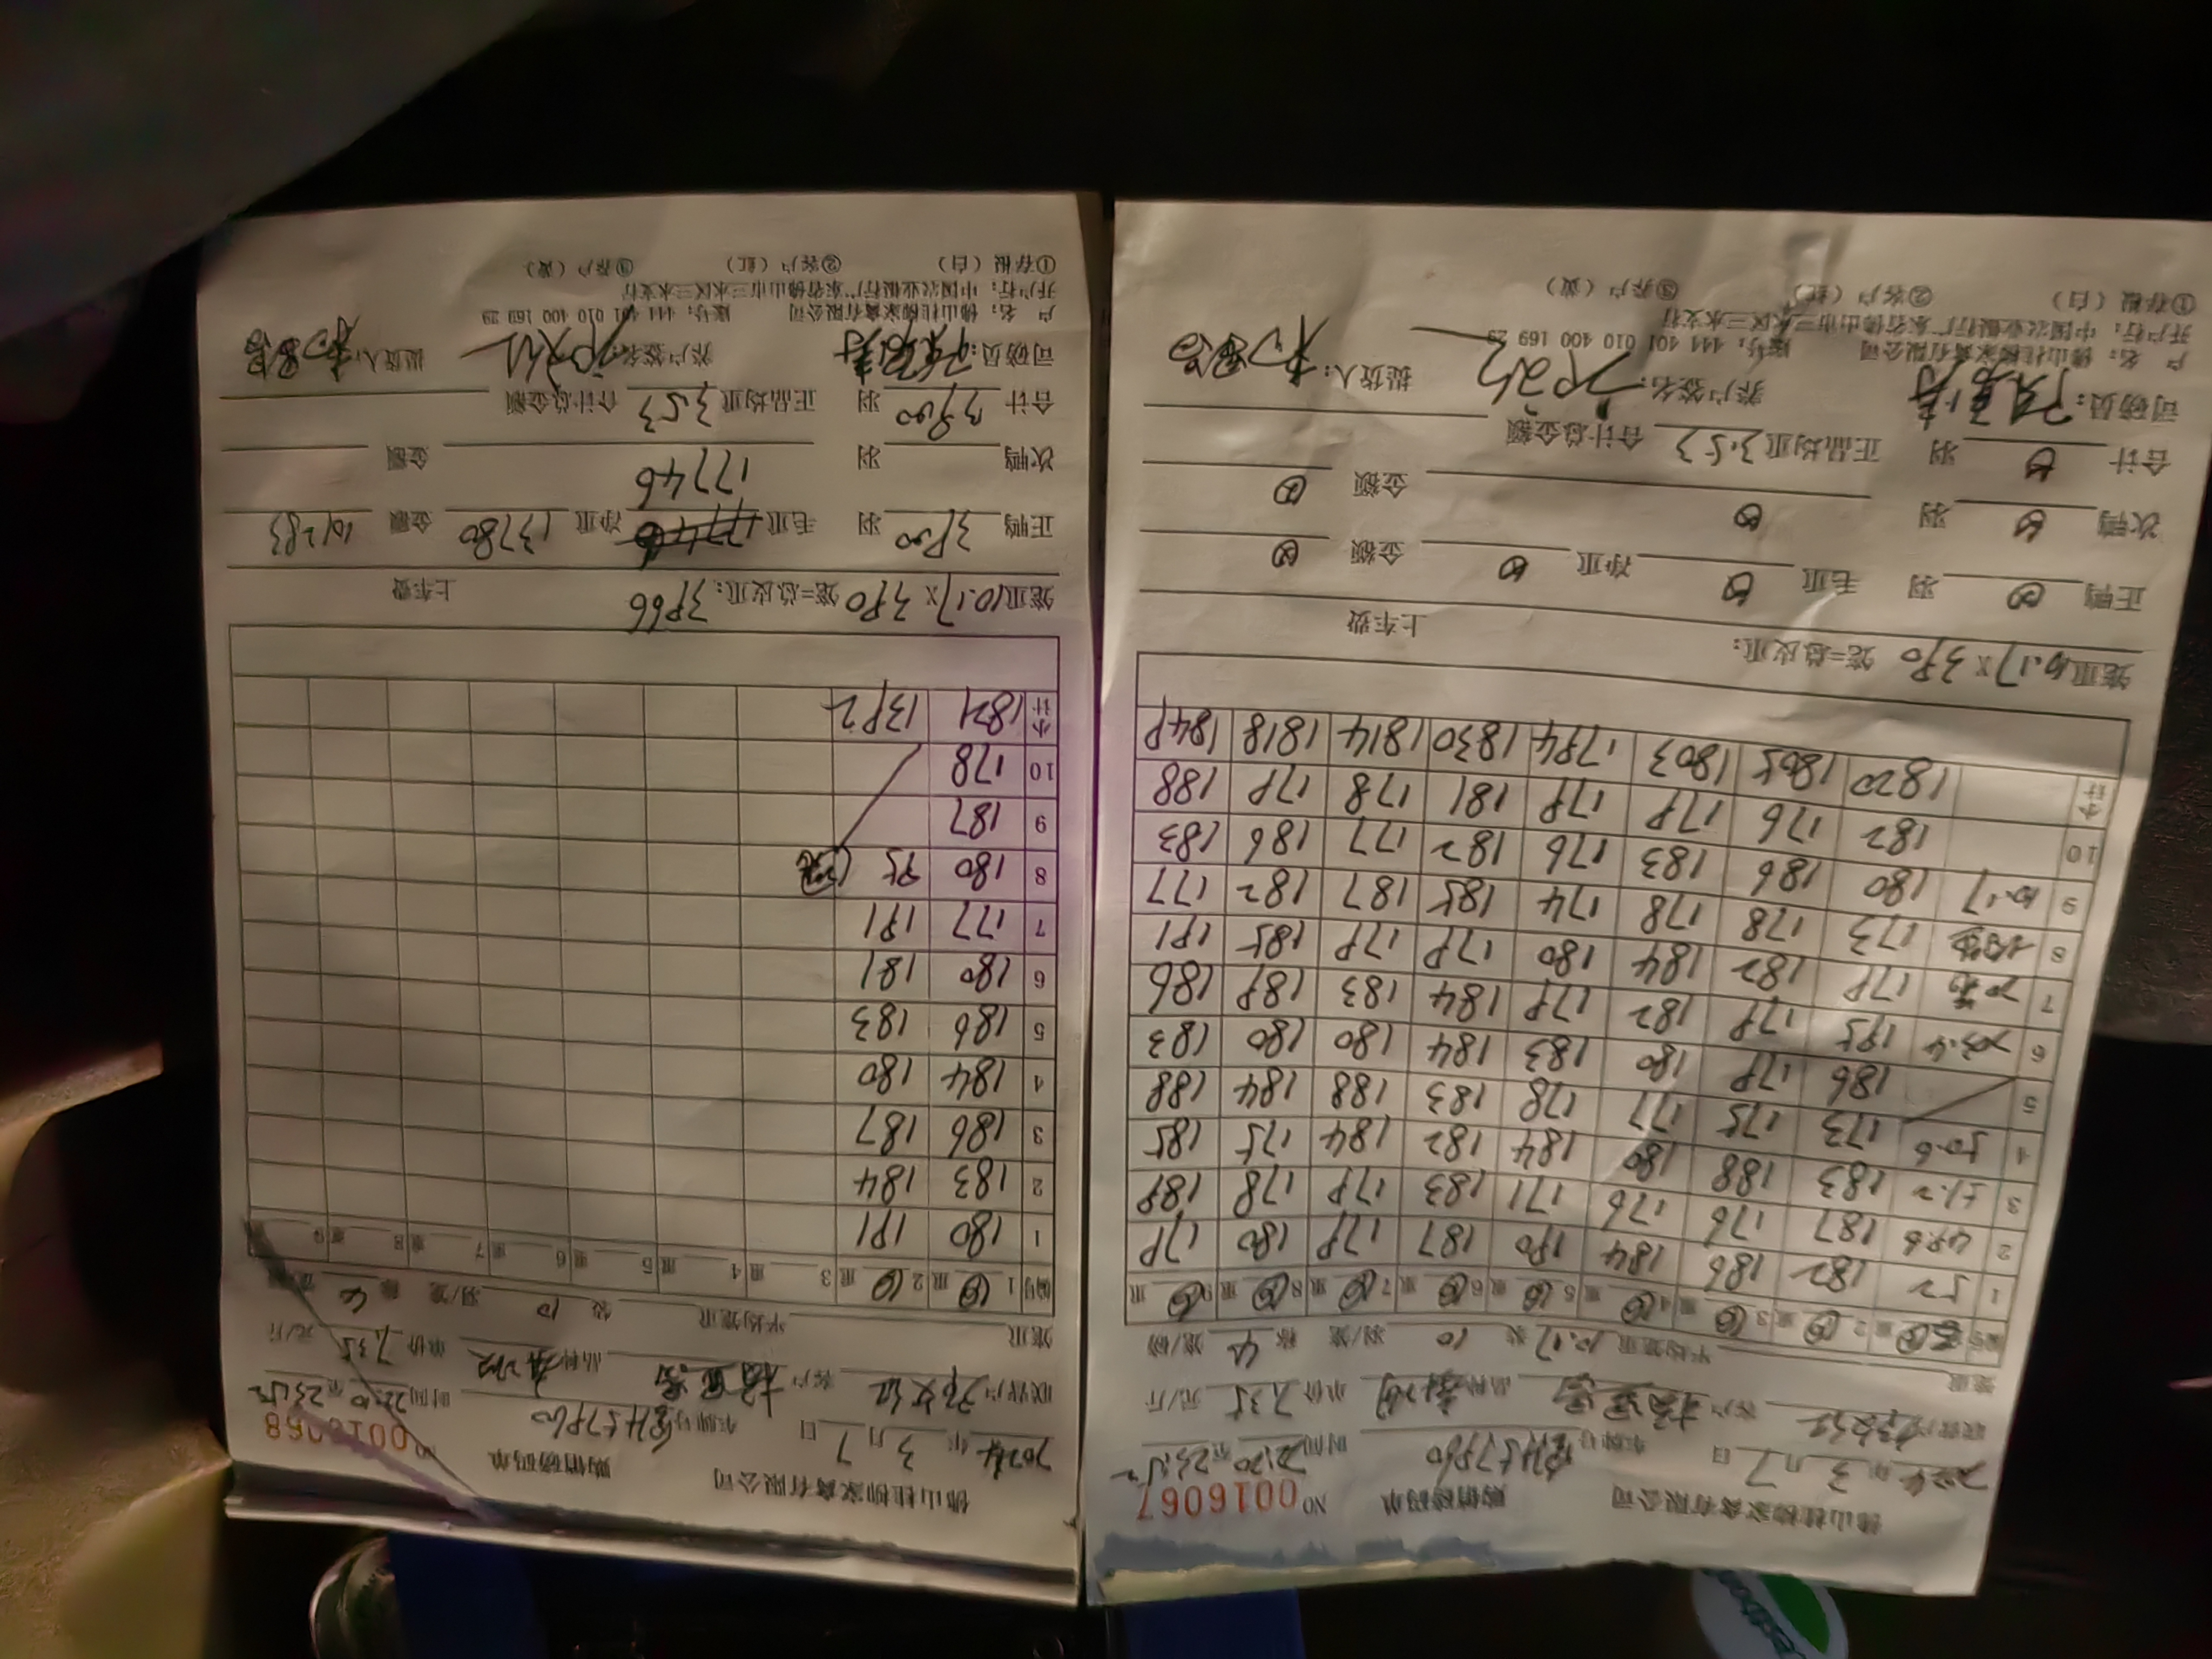 佛山桂柳家禽有限公司 购销磅码单 NO 0016067
2024年3月7日 车牌号 57960 时间 22:20至23:52
客户 品种 单价 7.35 元/斤
笼重 平均笼重 10.17 装 10 羽/笼 称 4 笼/磅
编号 重 2重 3重 4重 5重 6重 7重 8重 9重
1 52 182 186 184 190 187 179 180 179
2 49.6 187 176 176 171 183 179 178 189
3 51.2 183 188 180 184 182 184 175 185
4 50.6 173 175 177 178 183 188 184 188
5 186 179 180 183 184 180 180 183
6 203.4 195 179 182 179 184 183 189 186
7 20笼 179 182 184 180 179 179 185 191
8 均重 173 178 178 174 185 187 182 177
9 10.17 180 186 183 176 182 177 186 183
10 182 176 179 179 181 178 179 188
小计 1820 1805 1803 1794 1830 1814 1818 1849
笼重10.17 x 390 笼=总皮重： 上车费
正鸭 羽 毛重 净重 金额
次鸭 羽 金额
合计 羽 正品均重 3.53 合计总金额
司磅员： 养户签名： 提货人：
户 名：佛山桂柳家禽有限公司 账号：444 401 010 400 169 29
开户行：中国农业银行广东省佛山市三水区三水支行
①存根（白） ②客户（红） ③养户（黄）
佛山桂柳家禽有限公司 购销磅码单 NO 0016068
2024年3月7日 车牌号 57960 时间 22:20至23:52
客户 品种 单价 7.35 元/斤
笼重 平均笼重 装 10 羽/笼 称 4
编号 1重 2重 3重 4重 5重 6重 7重 8重 9重
1 180 191
2 183 184
3 186 187
4 184 180
5 186 183
6 180 181
7 177 191
8 180 95
9 187
10 178
小计 1821 1392
笼重10.17 x 390 笼=总皮重：3966 上车费
正鸭 3900 羽 毛重 17746 净重 13780 金额 101283
次鸭 羽 17746 金额
合计 3900 羽 正品均重 3.53 合计总金额
司磅员： 养户签名： 提货人：
户 名：佛山桂柳家禽有限公司 账号：444 401 010 400 169 29
开户行：中国农业银行广东省佛山市三水区三水支行
①存根（白） ②客户（红） ③养户（黄）